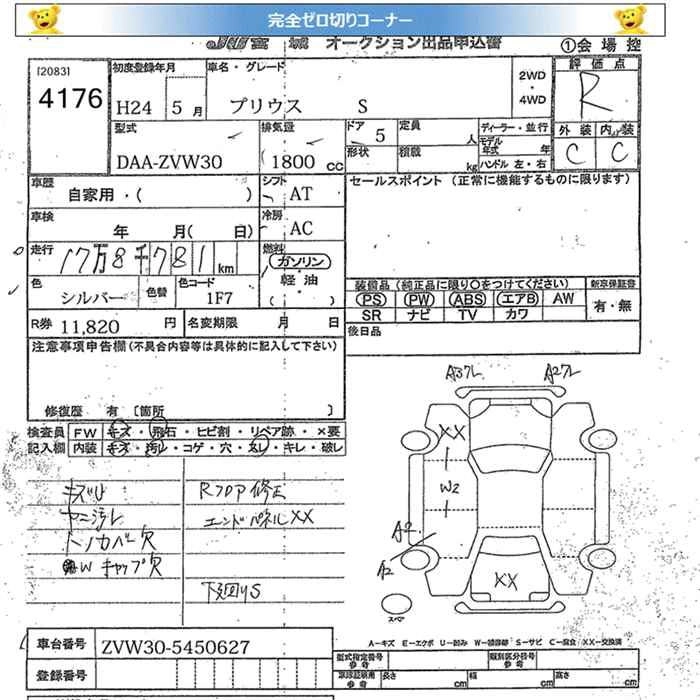 完全ゼロ切りコーナー
JU宮城 オークション出品申込書 ①会場控
[2083] 4176
初度登録年月 H24 5月
車名・グレード プリウス S
2WD・4WD
評価点 R
型式 DAA-ZVW30
排気量 1800cc
ドア 5
定員 人
形状
積載 kg
ディーラー・並行
モデル年式 年
ハンドル 左・右
外装 C 内装 C
車歴 自家用・( )
シフト AT
セールスポイント (正常に機能するものに限ります)
車検 年 月( 日)
冷房 AC
走行 17万8千781km
燃料 ガソリン 軽油 ( )
色 シルバー 色替
色コード 1F7
装備品(純正品に限り○をつけてください) 新車保証書
PS PW ABS エアB AW 有・無
SR ナビ TV カワ
R券 11,820円 名変期限 月 日
後日品
注意事項申告欄(不具合内容等は具体的に記入して下さい)
修復歴 有 [箇所 ]
検査員記入欄
FW キズ・飛石・ヒビ割・リペア跡・×要
内装 キズ・汚レ・コゲ・穴・スレ・キレ・破レ
キズU
ヤニ汚レ
トノカバー欠
W キャップ欠
Rフロア修正
エンドパネルXX
下廻りS
A3フレ A2フレ
XX
W2
A2
A2
XX
スペア
A―キズ E―エクボ U―凹み W―補修跡 S―サビ C―腐食 XX―交換済
車台番号 ZVW30-5450627
登録番号
型式指定番号 参考 類別区分番号 参考
車庫証明用 参考 長さ cm 幅 cm 高さ cm